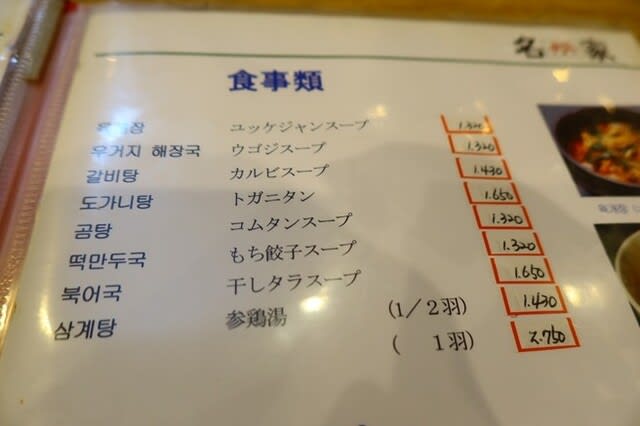 食事類
장 ユッケジャンスープ 1.320
우거지 해장국 ウゴジスープ 1.320
갈비탕 カルビスープ 1.430
도가니탕 トガニタン 1.650
곰탕 コムタンスープ 1.320
떡만두국 もち餃子スープ 1.320
북어국 干しタラスープ 1.650
삼계탕 参鶏湯 (1/2羽) 1.430
( 1羽) 2.750